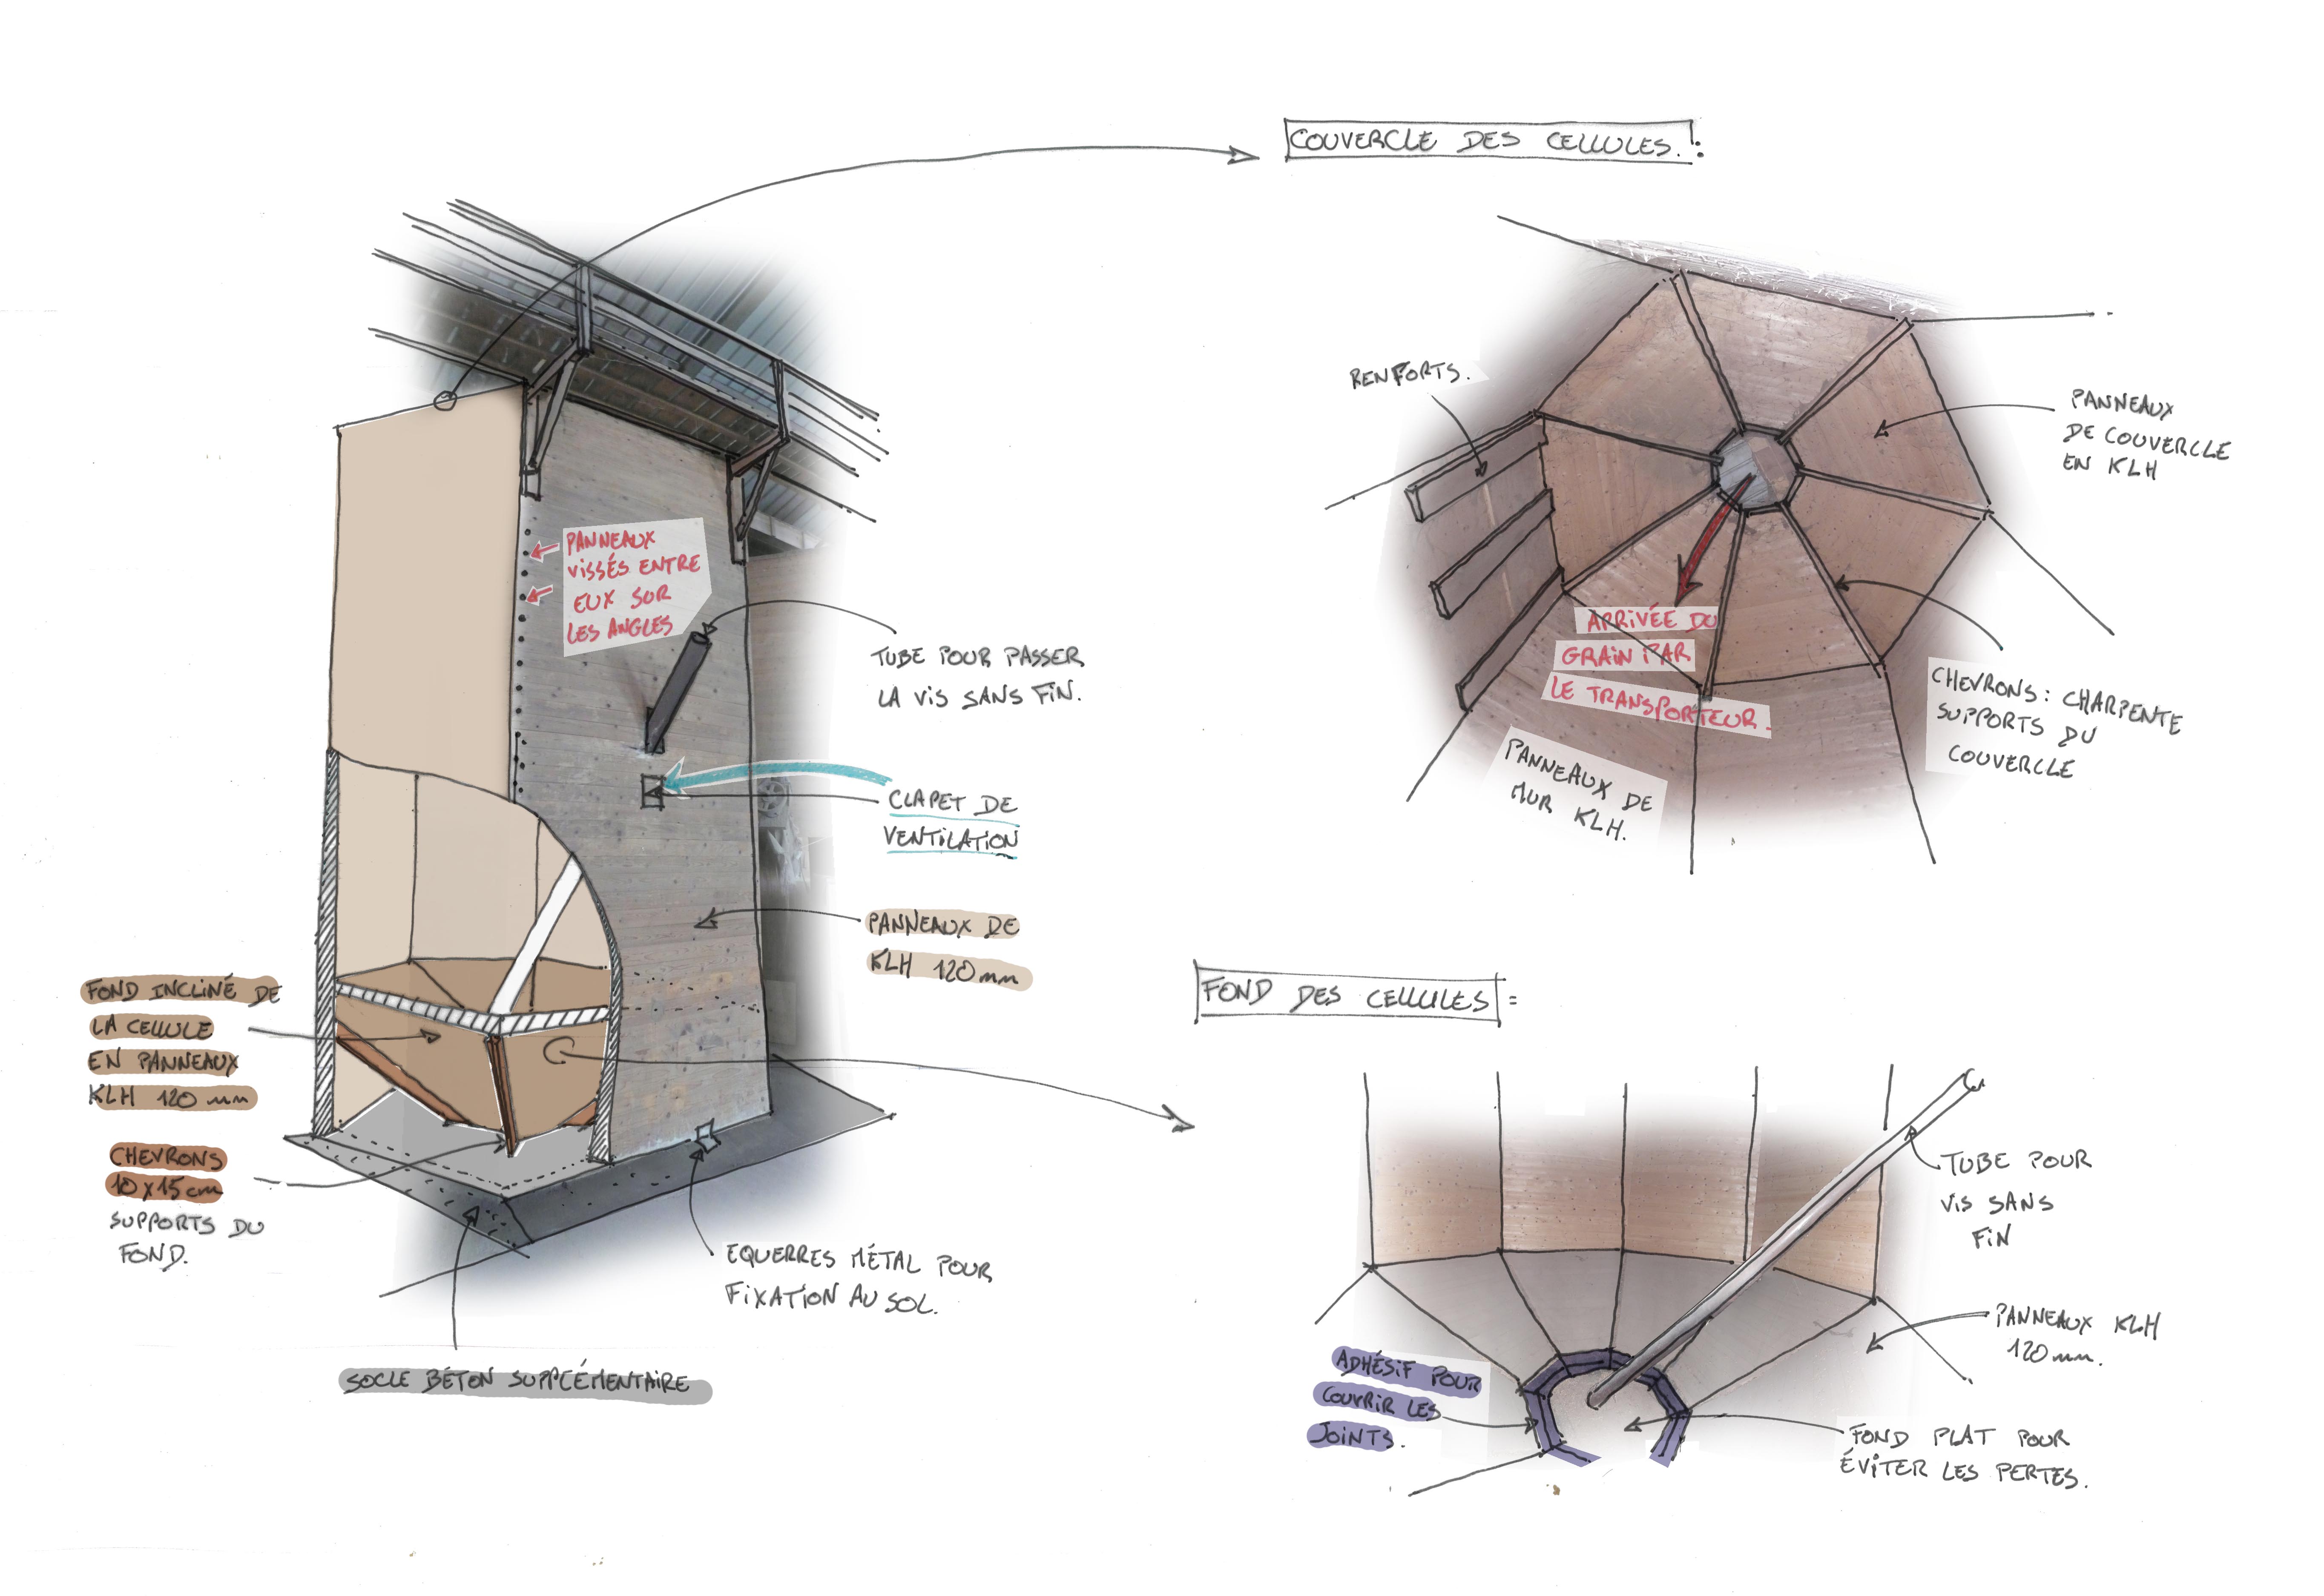 COUVERCLE DES CELLULES. :
RENFORTS.
PANNEAUX
DE COUVERCLE
EN KLH
PANNEAUX
VISSÉS ENTRE
EUX SUR
LES ANGLES
TUBE POUR PASSER
LA VIS SANS FIN.
ARRIVÉE DU
GRAIN PAR
LE TRANSPORTEUR.
CHEVRONS : CHARPENTE
SUPPORTS DU
COUVERCLE
PANNEAUX DE
MUR KLH.
CLAPET DE
VENTILATION
PANNEAUX DE
KLH 120 mm
FOND INCLINÉ DE
LA CELLULE
EN PANNEAUX
KLH 120 mm
CHEVRONS
10x15 cm
SUPPORTS DU
FOND.
EQUERRES MÉTAL POUR
FIXATION AU SOL.
SOCLE BÉTON SUPPLÉMENTAIRE
FOND DES CELLULES :
TUBE POUR
VIS SANS
FIN
PANNEAUX KLH
120 mm.
ADHÉSIF POUR
COUVRIR LES
JOINTS.
FOND PLAT POUR
ÉVITER LES PERTES.